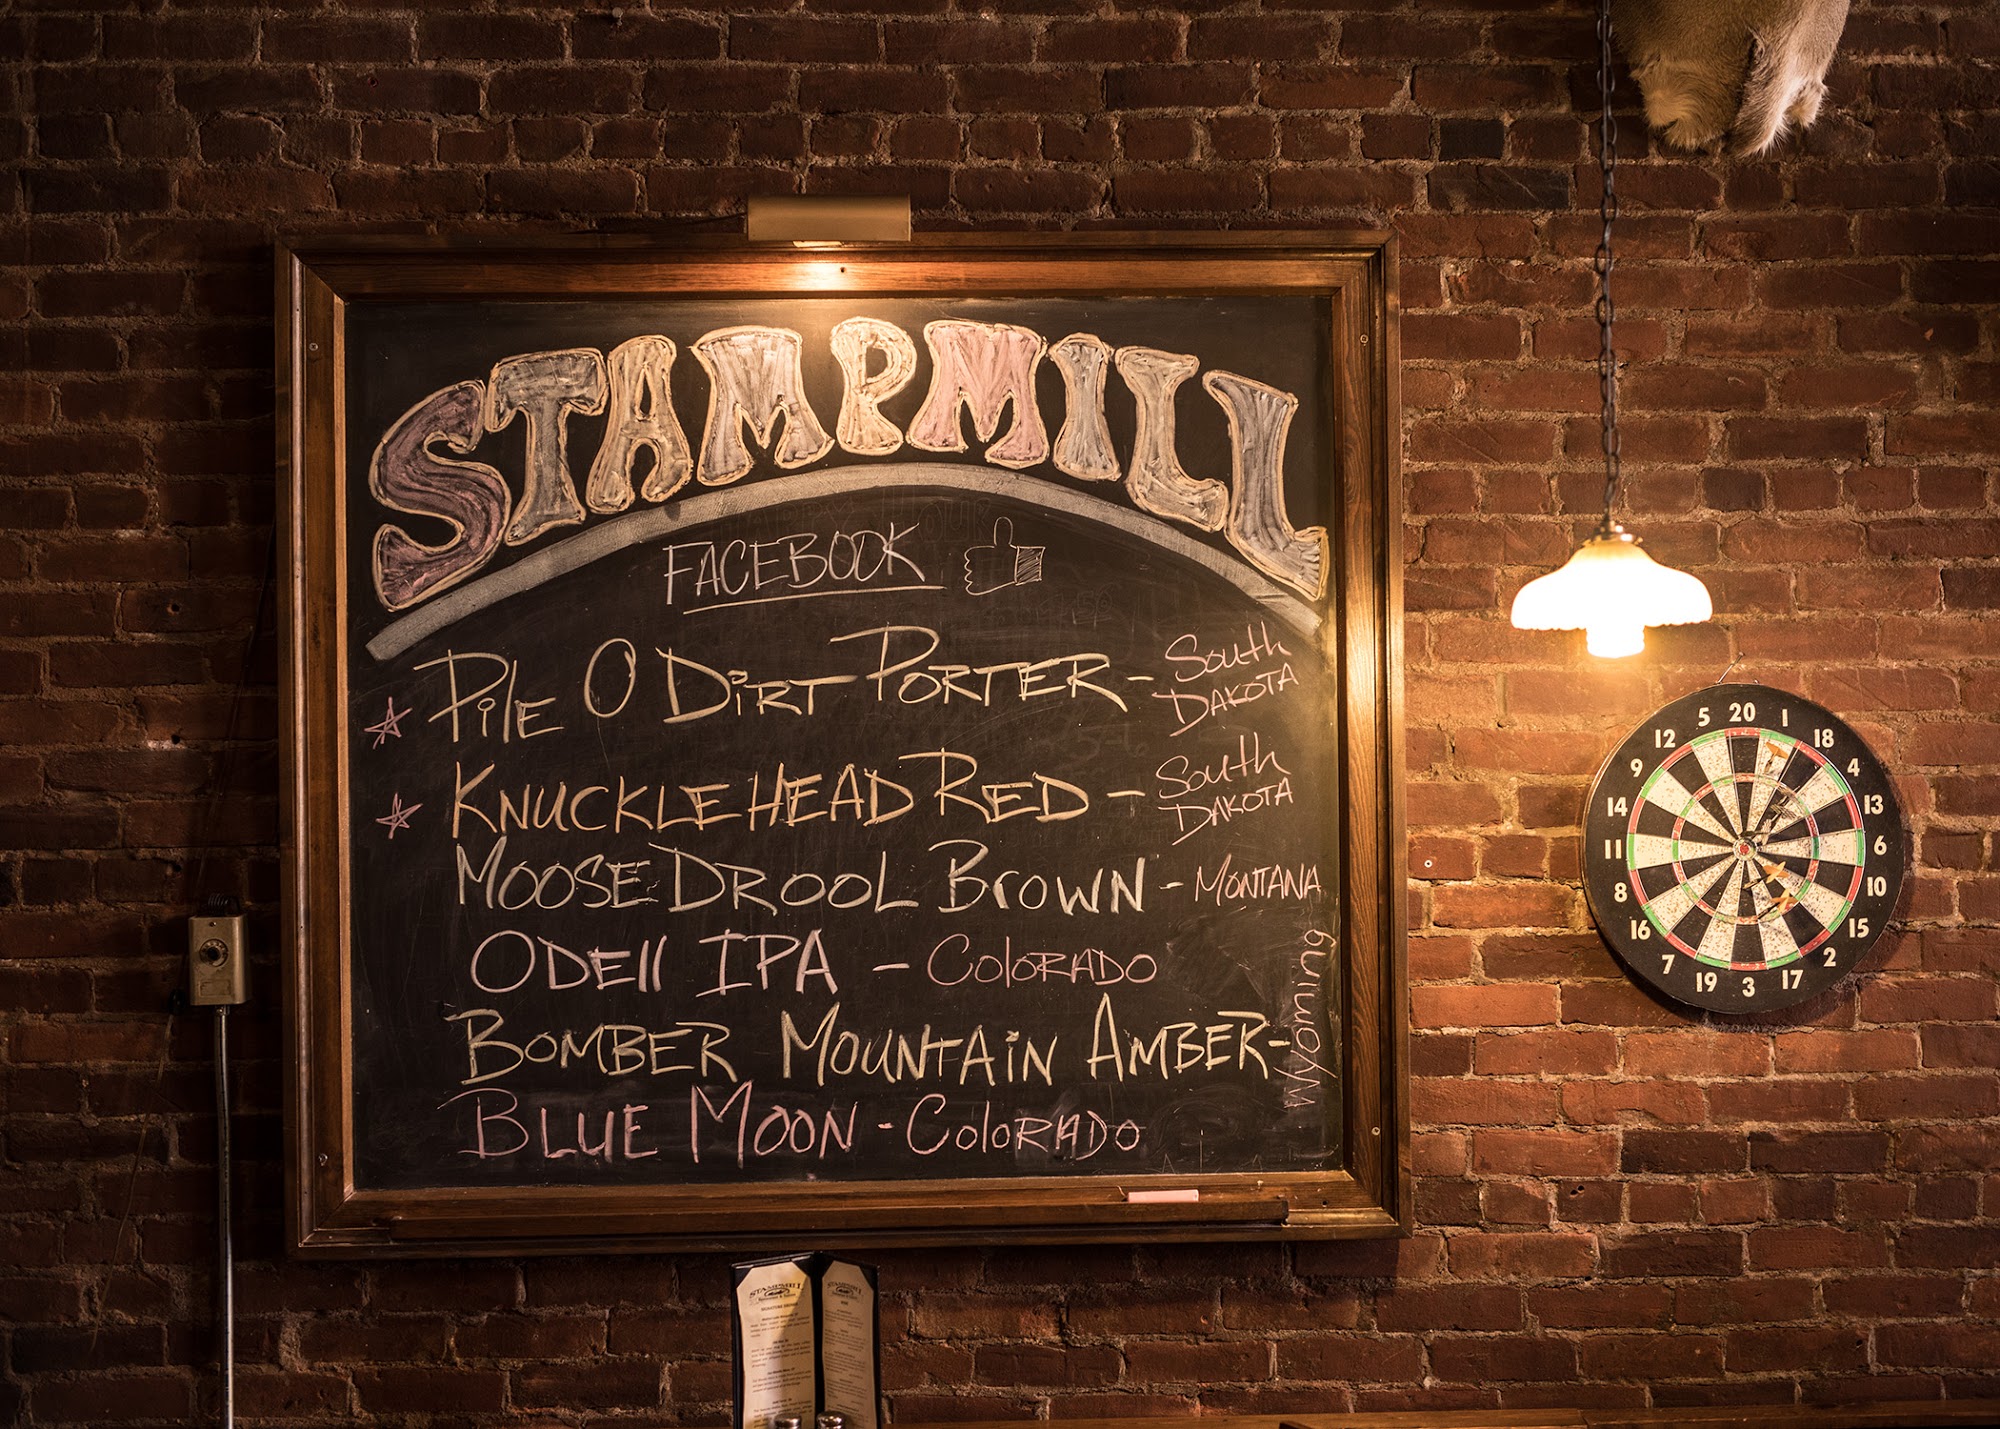 STAMPMILL
FACEBOOK
Pile O Dirt Porter - South Dakota
Knucklehead Red - South Dakota
Moose Drool Brown - Montana
Odell IPA - Colorado
Bomber Mountain Amber - Wyoming
Blue Moon - Colorado
5 20 1 18 4 13 6 10 15 2 17 3 19 7 16 8 11 14 9 12
STAMPMILL